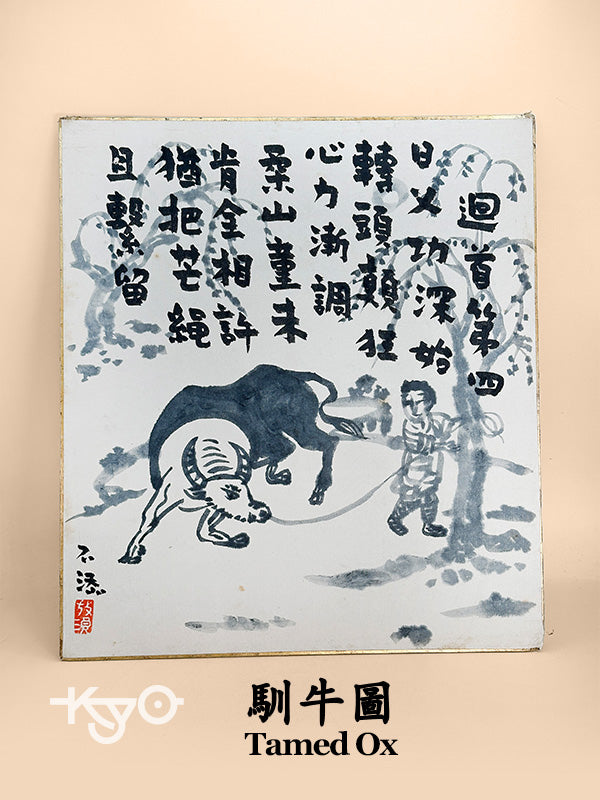 迴首第四
日久功深始
轉頭顛狂
心力漸調
柔山童未
肯全相許
猶把芒繩
且繫留
不添
Kyo
馴牛圖
Tamed Ox